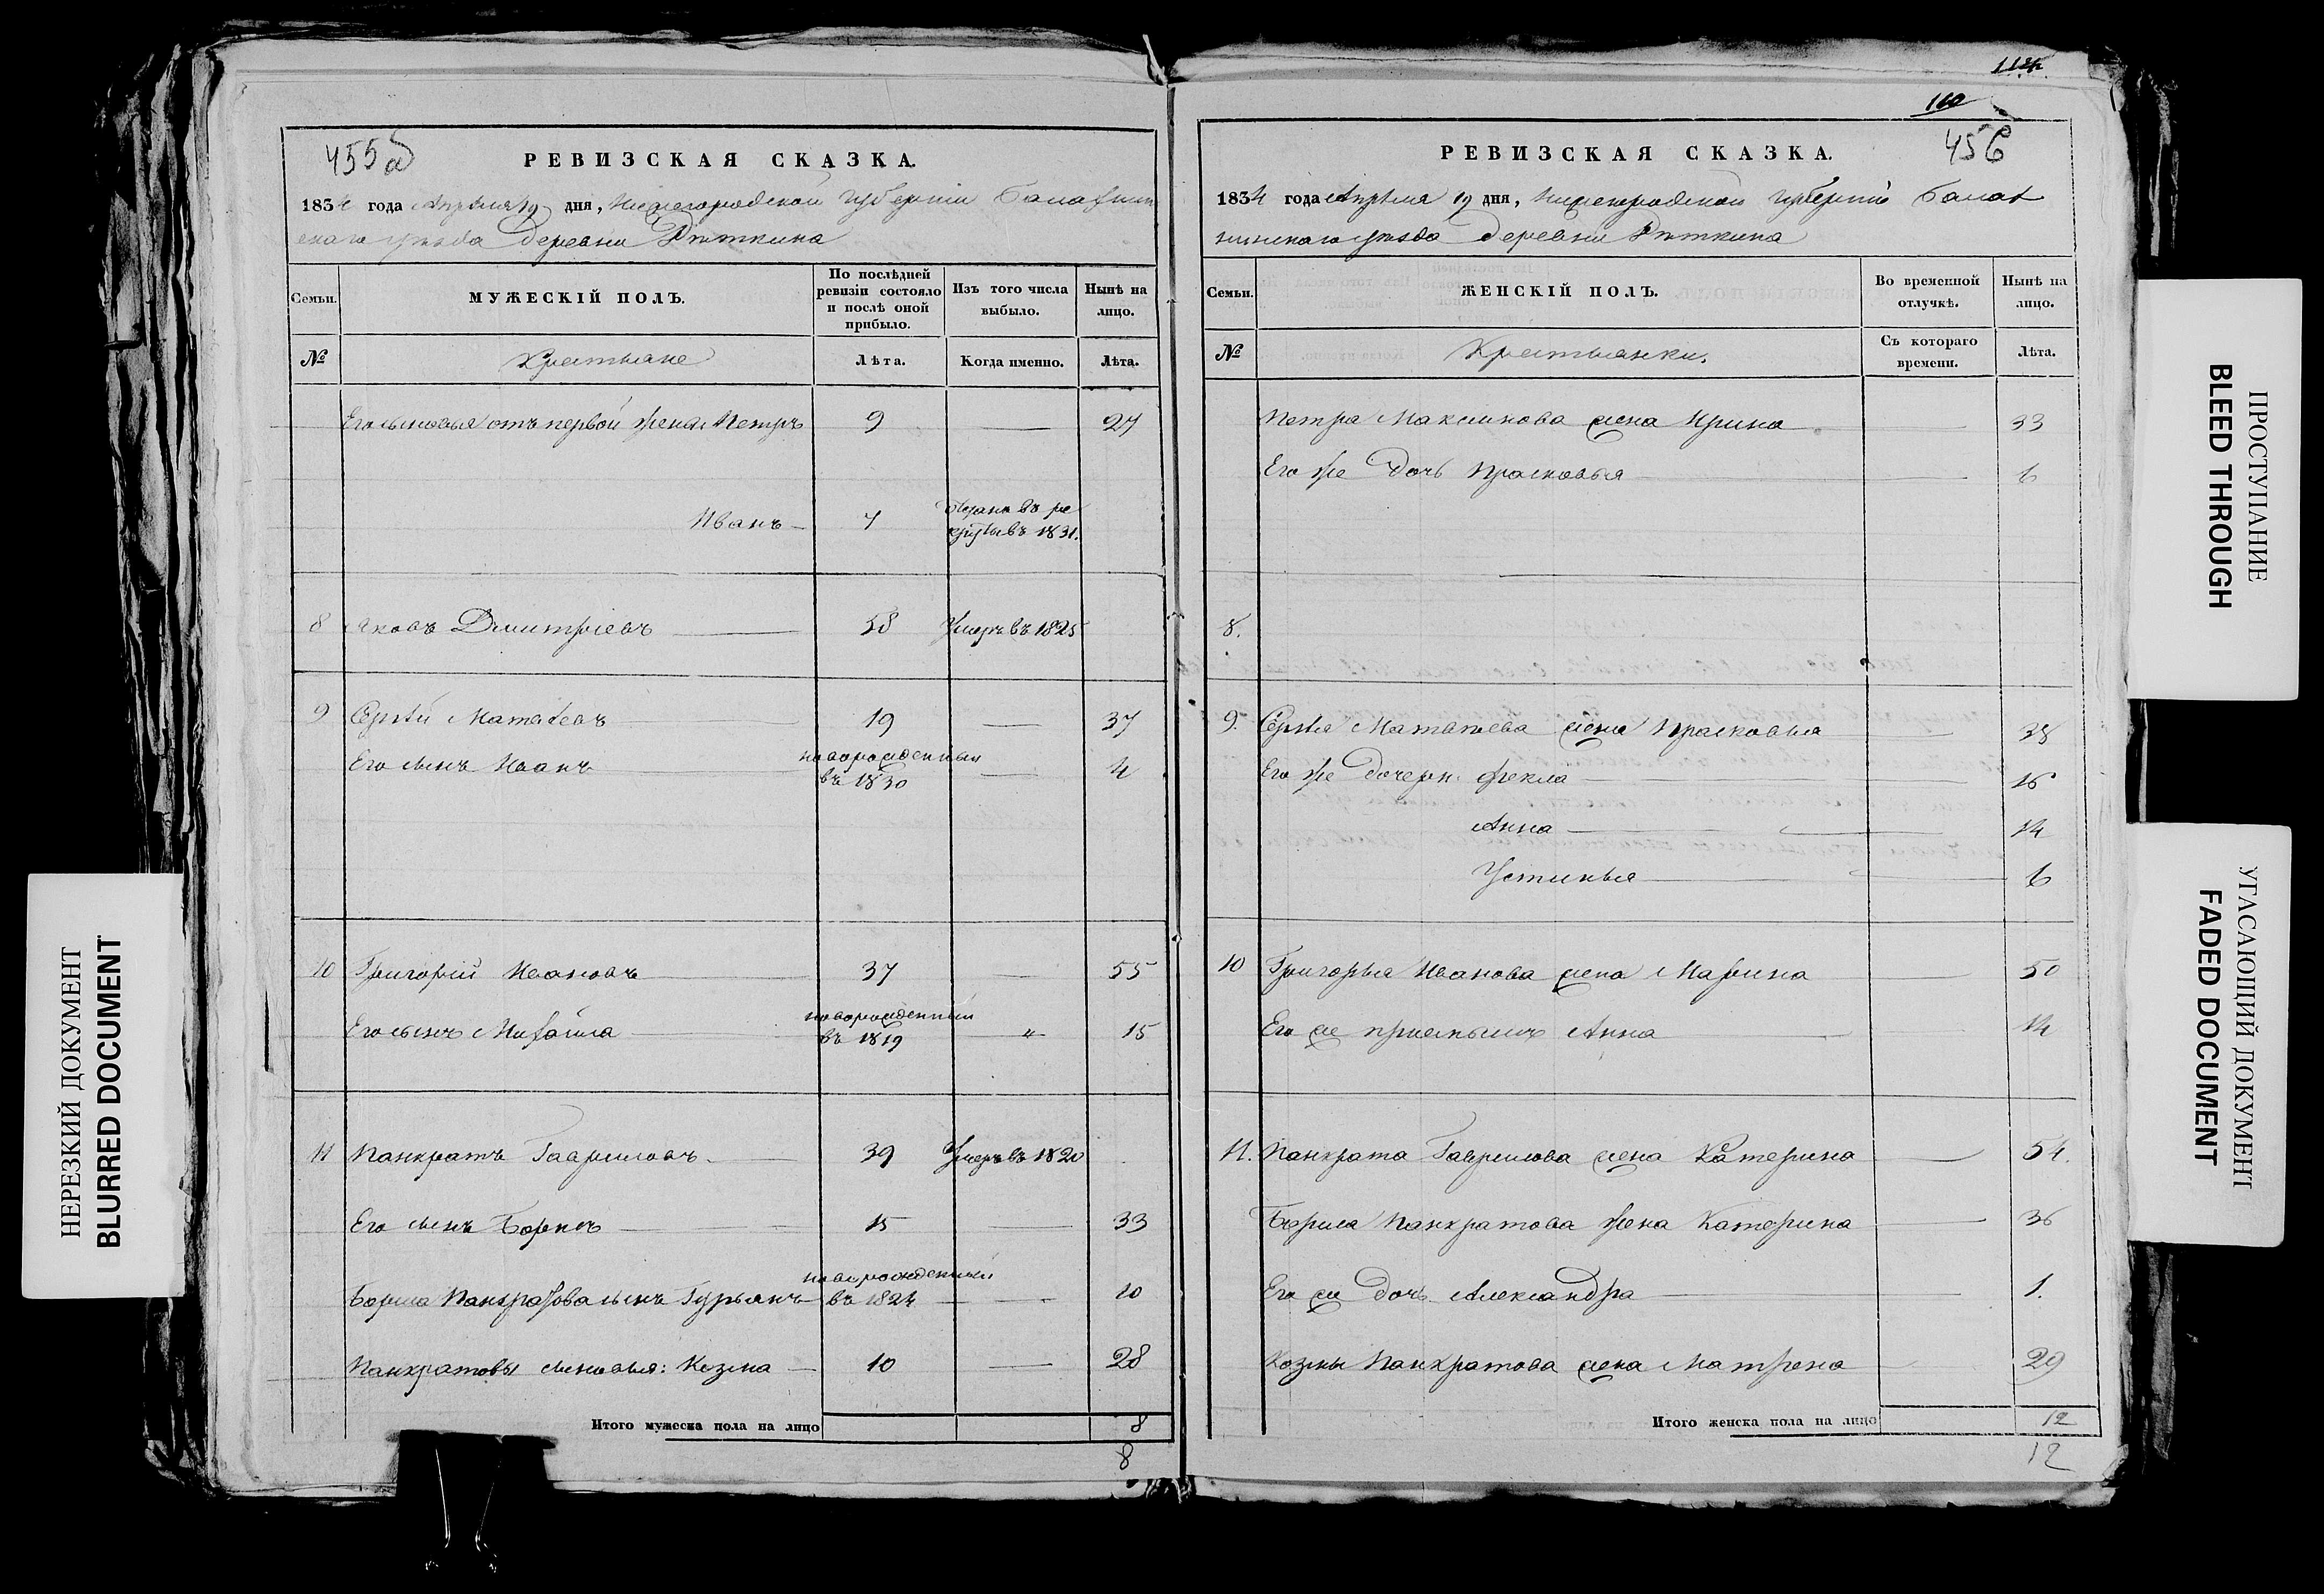 455 об
РЕВИЗСКАЯ СКАЗКА.
1834 года Апреля 19 дня, Нижегородской губерніи Балахнин
скаго уѣзда деревни
Семьи.
МУЖЕСКІЙ ПОЛЪ.
По послѣдней ревизіи состояло и послѣ оной прибыло.
Изъ того числа выбыло.
Нынѣ на лицо.
№
Крестьяне
Лѣта.
Когда именно.
Лѣта.
Его сыновья отъ первой жены Петръ 9 — 27
Иванъ — 7 Отданъ въ ре
круты въ 1831.
8 Яковъ Дмитріевъ — 58 Умеръ въ 1825
9 Сергѣй Матвѣевъ — 19 — 37
Его сынъ Иванъ — новорожденный
въ 1830 — 4
10 Григорій Ивановъ — 37 — 55
Его сынъ Михайла — новорожденный
въ 1819 — " — 15
11 Панкратъ Гавриловъ — 39 Умеръ въ 1820
Его сынъ Борисъ — 15 — 33
Бориса Панкратова сынъ Гурьянъ — новорожденный
въ 1824 — 10
Панкратовы сыновья: Козма — 10 — 28
Итого мужеска пола на лицо 8
8
114
110
456
РЕВИЗСКАЯ СКАЗКА.
1834 года Апреля 19 дня, Нижегородской губерніи Балах
нинскаго уѣзда деревни
Семьи.
ЖЕНСКІЙ ПОЛЪ.
Во временной отлучкѣ.
Нынѣ на лицо.
№
Крестьянки.
Съ котораго времени.
Лѣта.
Петра Максимова жена Ирина — 33
Его же дочь Прасковья — 6
8.
9. Сергѣя Матвѣева жена Прасковья — 38
Его же дочери: Фекла — 16
Анна — 14
Устинья — 6
10 Григорья Иванова жена Марина — 50
Его же пріемышъ Анна — 14
11. Панкрата Гаврилова жена Катерина — 54.
Бориса Панкратова жена Катерина — 36
Его же дочь Александра — 1.
Козмы Панкратова жена Матрена — 29
Итого женска пола на лицо 12
12
НЕРЕЗКИЙ ДОКУМЕНТ
BLURRED DOCUMENT
ПРОСТУПАНИЕ
BLEED THROUGH
УГАСАЮЩИЙ ДОКУМЕНТ
FADED DOCUMENT